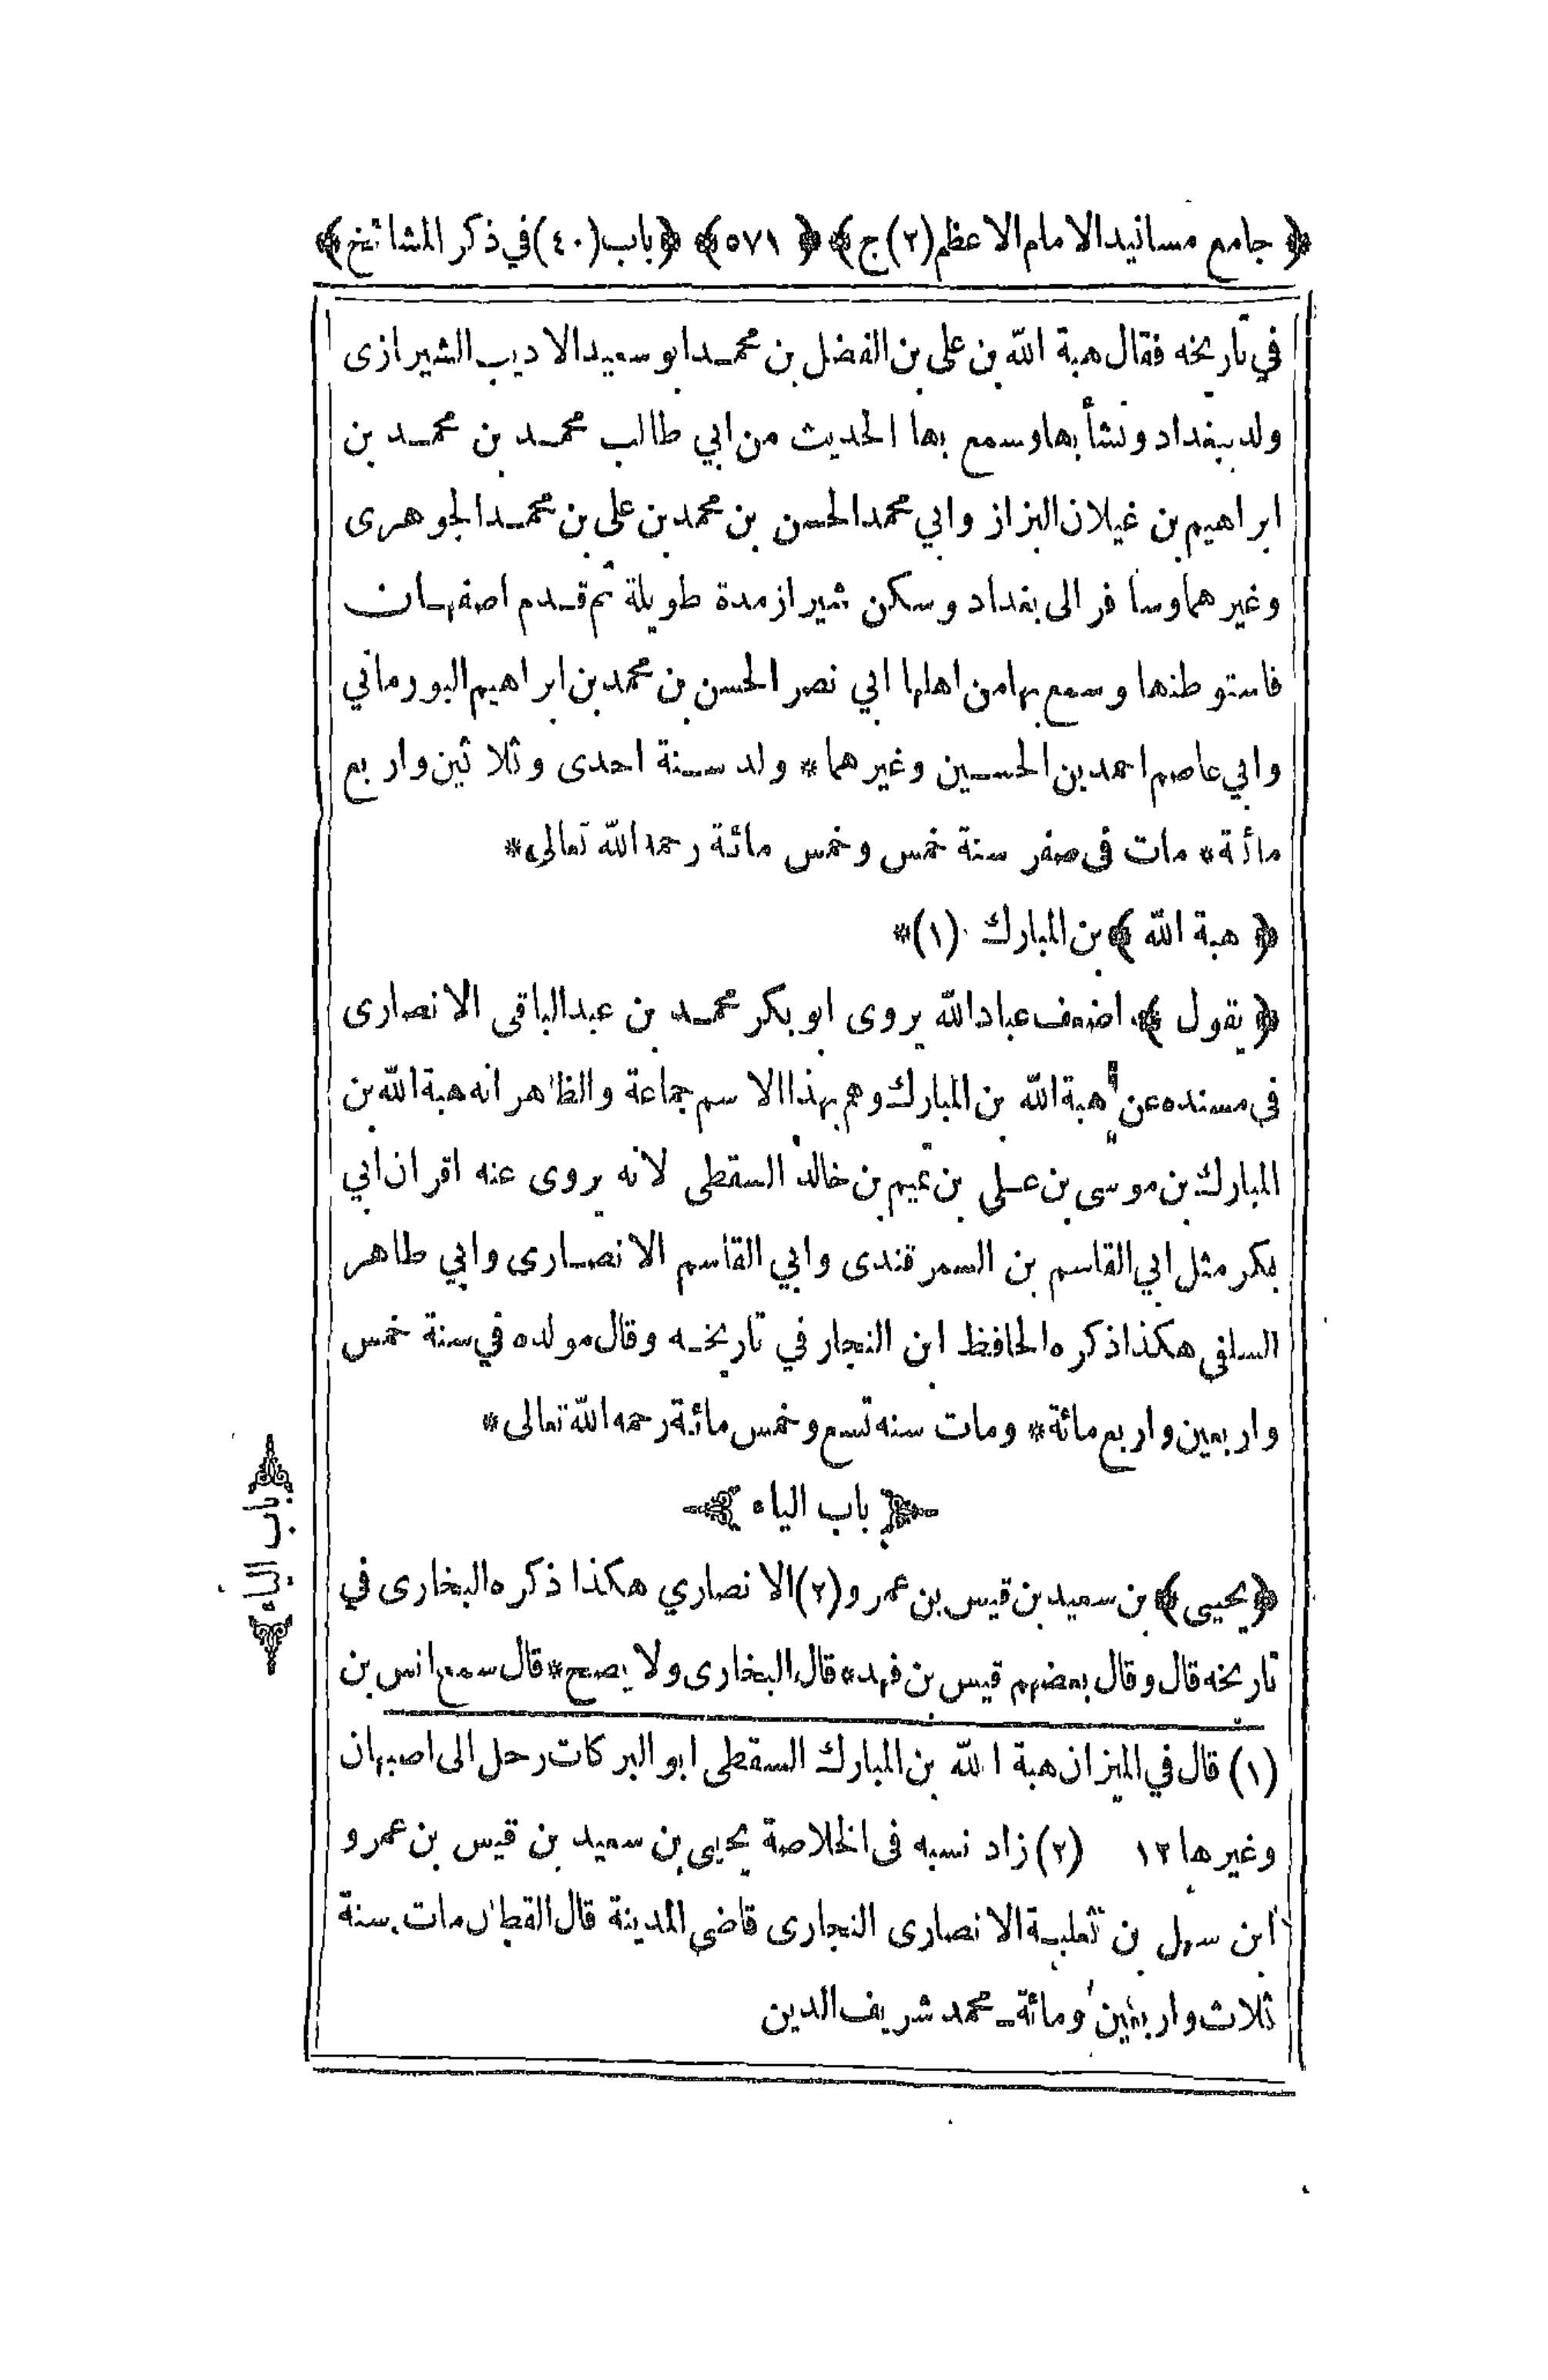 ﴿ جامع مسانيد الامام الاعظم (٢) ج ﴾ ﴿ ٥٧١ ﴾ ﴿ باب (٤٠) في ذكر المشائخ ﴾
في تاريخه فقال هبة الله بن على بن الفضل بن محمد ابو سعيد الاديب الشيرازى
ولد ببغداد ونشأ بها وسمع بها الحديث من ابي طالب محمد بن محمد بن
ابراهيم بن غيلان البزاز وابي محمد الحسن بن محمد بن على بن محمد الجوهرى
وغيرهما وسافر الى بغداد وسكن شيراز مدة طويلة ثم قدم اصفهان
فاستوطنها وسمع بها من اهلها ابي نصر الحسن بن محمد بن ابراهيم البورماني
وابي عاصم احمد بن الحسين وغيرهما * ولد سنة احدى وثلاثين واربع
مائة * مات فى صفر سنة خمس وخمس مائة رحمه الله تعالى *
﴿ هبة الله ﴾ بن المبارك (١) *
﴿ يقول ﴾ اضعف عباد الله يروى ابو بكر محمد بن عبد الباقى الانصارى
فى مسنده عن هبة الله بن المبارك وهم بهذا الاسم جماعة والظاهر انه هبة الله بن
المبارك بن موسى بن على بن تميم بن خالد السقطى لانه يروى عنه اقران ابي
بكر مثل ابي القاسم بن السمرقندى وابي القاسم الانصارى وابي طاهر
السلفى هكذا ذكره الحافظ ابن النجار في تاريخه وقال مولده في سنة خمس
واربعين واربع مائة * ومات سنه تسع وخمس مائة رحمه الله تعالى *
باب الياء
﴿ يحيى ﴾ بن سعيد بن قيس بن عمرو (٢) الانصاري هكذا ذكره البخارى في
تاريخه قال وقال بعضهم قيس بن فهد * قال البخارى ولا يصح * قال سمع انس بن
باب الياء
(١) قال في الميزان هبة الله بن المبارك السقطى ابو البركات رحل الى اصبهان
وغيرها ١٢ (٢) زاد نسبه فى الخلاصة يحيى بن سعيد بن قيس بن عمرو
ابن سهل بن ثعلبة الانصارى النجارى قاضى المدينة قال القطان مات سنة
ثلاث واربعين ومائة ـ محمد شريف الدين